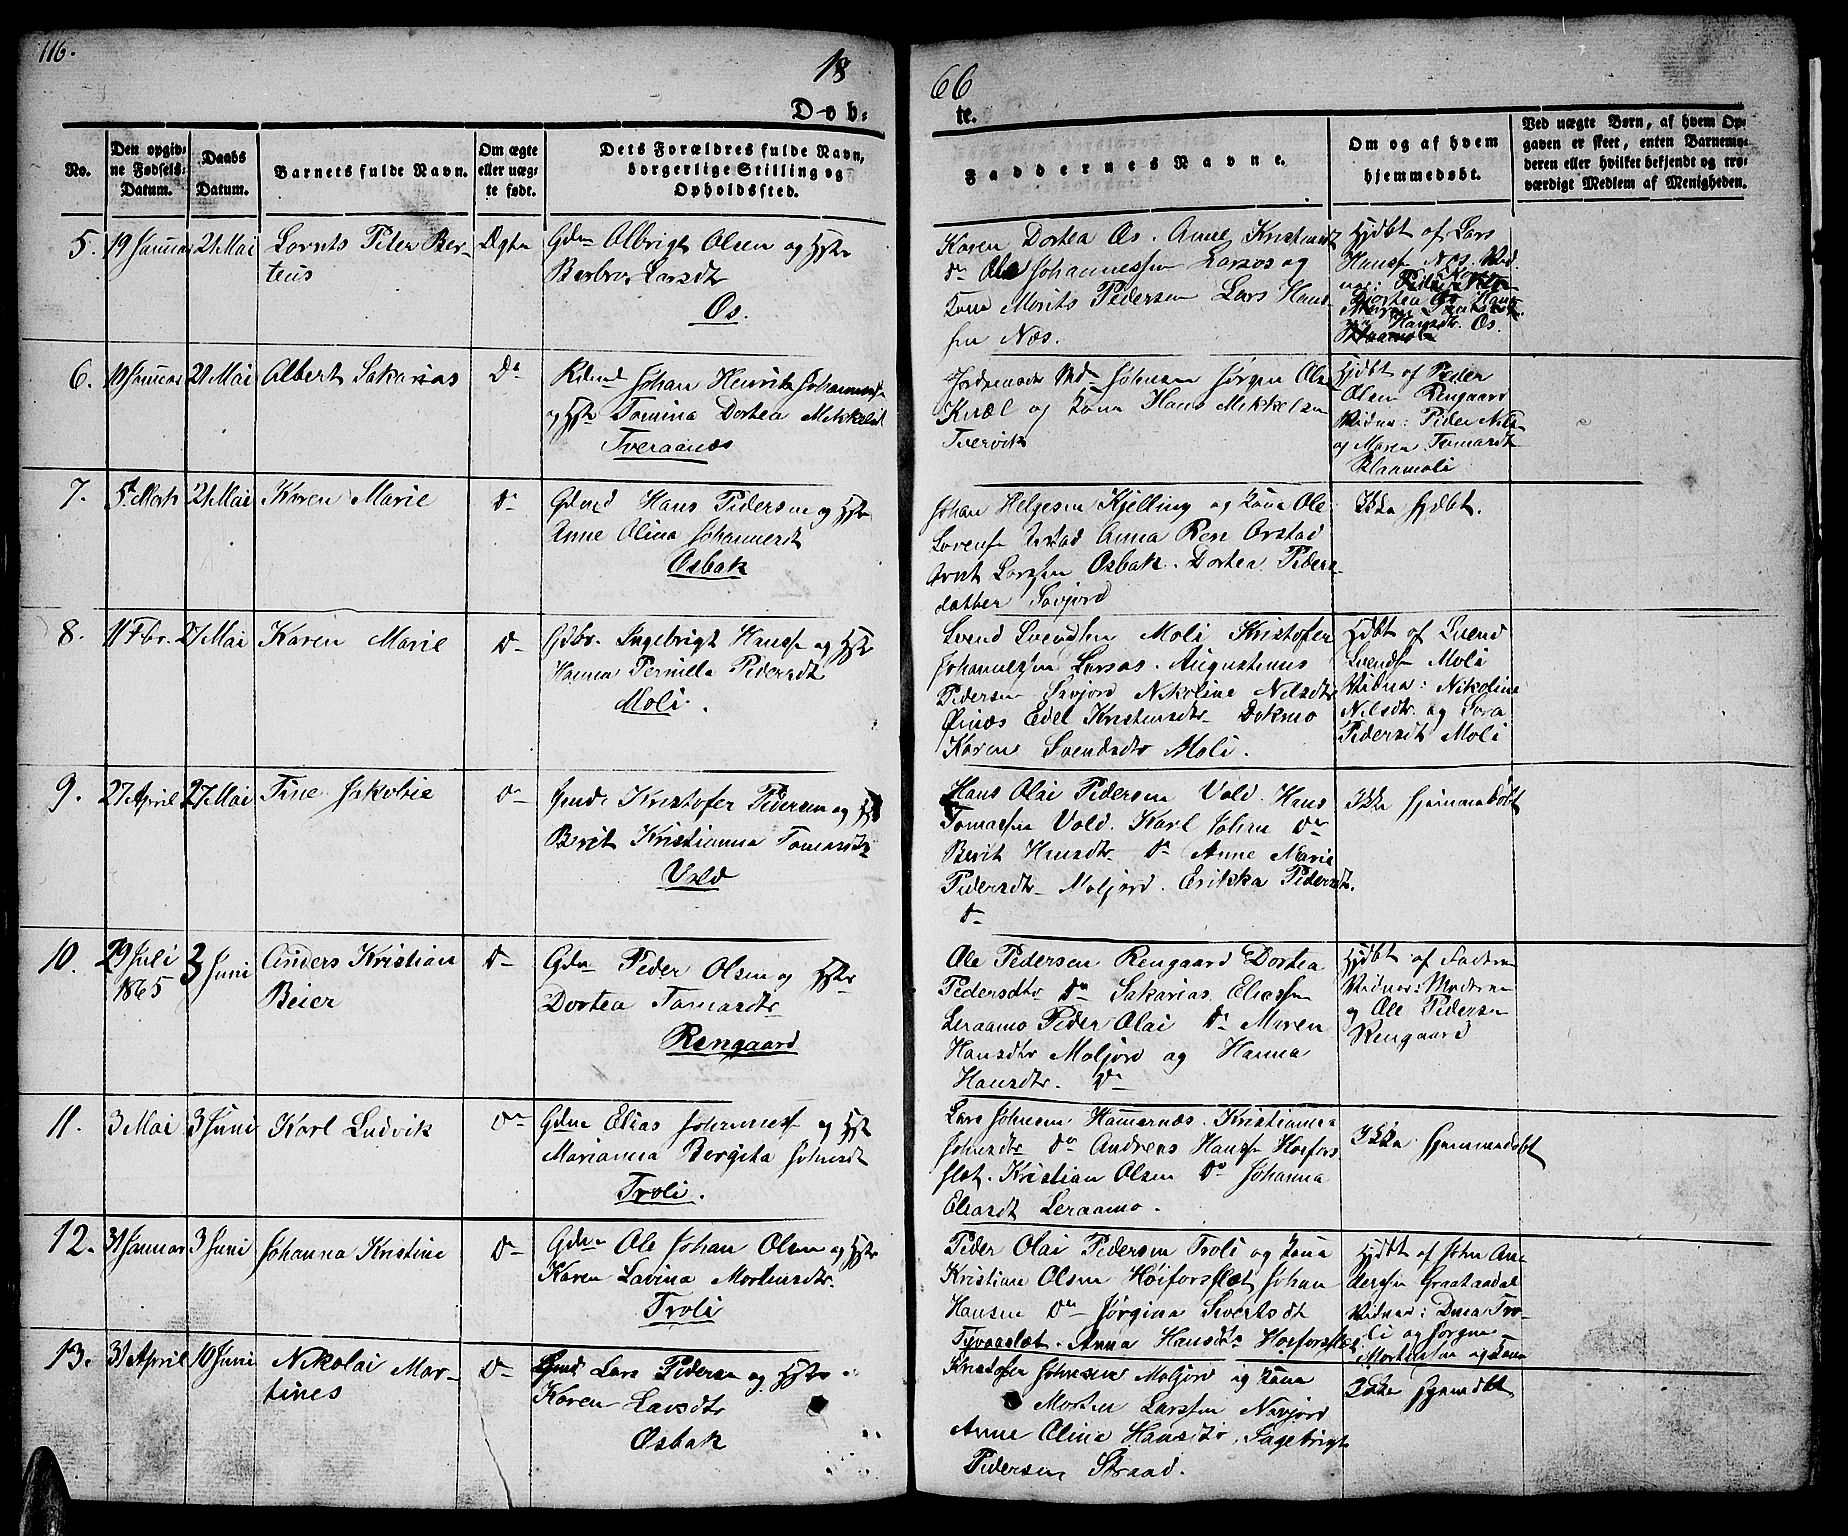 116.
18
66
Døb:
te.
No.
Den opgiv-
ne Fødsels-
Datum.
Daabs
Datum.
Barnets fulde Navn.
Om ægte
eller uæg-
te født.
Dets Forældres fulde Navn,
borgerlige Stilling og
Opholdssted.
Faddernes Navne.
Om og af hvem
hjemmedøbt.
Ved uægte Børn, af hvem Op-
gaven er skeet, enten Barnemo-
deren eller hvilket bekjendt og tro-
værdigt Medlem af Menigheden.
5.
19 Januar
21 Mai
Lornts Peter Ber-
teus
Ægte
Gdm Albrigt Olsen og Hstr
Berbro Larsdtr
Os.
Karen Dortea Os. Anne Kristensdt
Do Ole Johannessen Larsos og
Kona Morits Pedersen Lars Hans-
sen Næs.
Hjdbt af Lars
Hanss Næs. Vid-
Hansdtr. Os.
6.
21 Mai
Albert Sakarias
Do
Johan Henrik Johanness
og Hstr Tomina Dortea Mikkelsdt
Tveraanæs
Johnsen Jørgen Olse
Kvæl og Kona Hans Mikkelsen
Tvervik
Hjdbt af Peder
Olsen Rengaard
Vidne: Peder Nils-
og Maren Tomasdtr
7.
5 Marts
21 Mai
Karen Marie
Do
Gdmd Hans Pedersen og Hstr
Anne Olina Johannesdt
Osbak
Johan Helgesen Kjelling og Kona Ole
Sørenss Anna Ren Orstad
Arnt Larssen Osbak. Dortea Peders-
datter Savjord
Ikke hjdbt.
8.
11 Fbr.
27 Mai
Karen Marie
Do
Gdbr. Ingebrigt Hanss og Hstr
Hanna Pernille Pedersdt
Moli.
Svend Svendsen Moli Kristofer
Johannessen Larsos. Augustinus
Pedersen Savjord Nikoline Nilsdtr
Øinæs Edel Kristensdtr Dokmo
Karen Svendsdtr Moli.
Hjdbt af Svend
Svends Moli
Vidne: Nikoline
Nilsdtr. og Sara
Pedersdt Moli
9.
27 April
27 Mai
Tine Jakobie
Do
Gmd. Kristofer Pedersen og H
Berit Kristianna Tomasdtr
Vold
Hans Olai Pedersen Vold. Hans
Tomassen Vold. Karl Johan Do
Berit Hansdtr Do Anne Marie
Pedersdtr Moljord. Erikka Pedersdt.
Do
Ikke hjemmedøbt
10.
29 Juli
1865
3 Juni
Anders Kristian
Beier
Do
Gdm Peder Olsen og Hstr
Dortea Tomasdtr
Rengaard
Ole Pedersen Rengaard Dortea
Pedersdtr Do Sakarias Eliassen
Leraamo Peder Olai Do Maren
Hansdtr Moljord og Hanna
Hansdtr. Do
Hjdbt af Faderen
Vidner: Moderen
og Ole Pedersen
Rengaard
11.
3 Mai
3 Juni
Karl Ludvik
Do
Gdm Elias Johanness og Hst
Marianna Bergita Johnsdt
Troli.
Lars Johnsen Hamernæs. Kristianna
Johnsdtr Do Andreas Hanss Høifors-
slæt. Kristian Olsen Do Johanna
Eliasdt Leraamo.
Ikke hjemmedøbt
12.
31 Januar
3 Juni
Johanna Kristine
Do
Gdm Ole Johan Olsen og Hstr
Karen Lavina Mortensdtr.
Troli
Peder Olai Pedersen Troli og Kona
Kristian Olsen Høiforsslæt Johan
Hansen Do Jørgina Sivertsdt
Anna Hansdtr Høiforsslæt
Hjdbt af John An-
derssen Graataadal
Vidner: Dina Tro-
li og Jørgen
Mortensen og Kona
13.
31 April
10 Juni
Nikolai Mar-
tines
Do
Gmd Lars Pedersen og Hstr
Karen Larsdtr
Osbak
Kristofer Johnsen Moljord og Kona
Morten Larssen Navjord
Anne Olina Hansdtr. Ingebrigt
Pedersen Straad.
Ikke hjemdbt